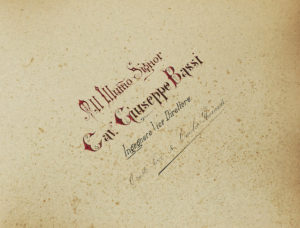 All'Illumo Signor
Cav. Giuseppe Bassi
Ingegnere Vice Direttore